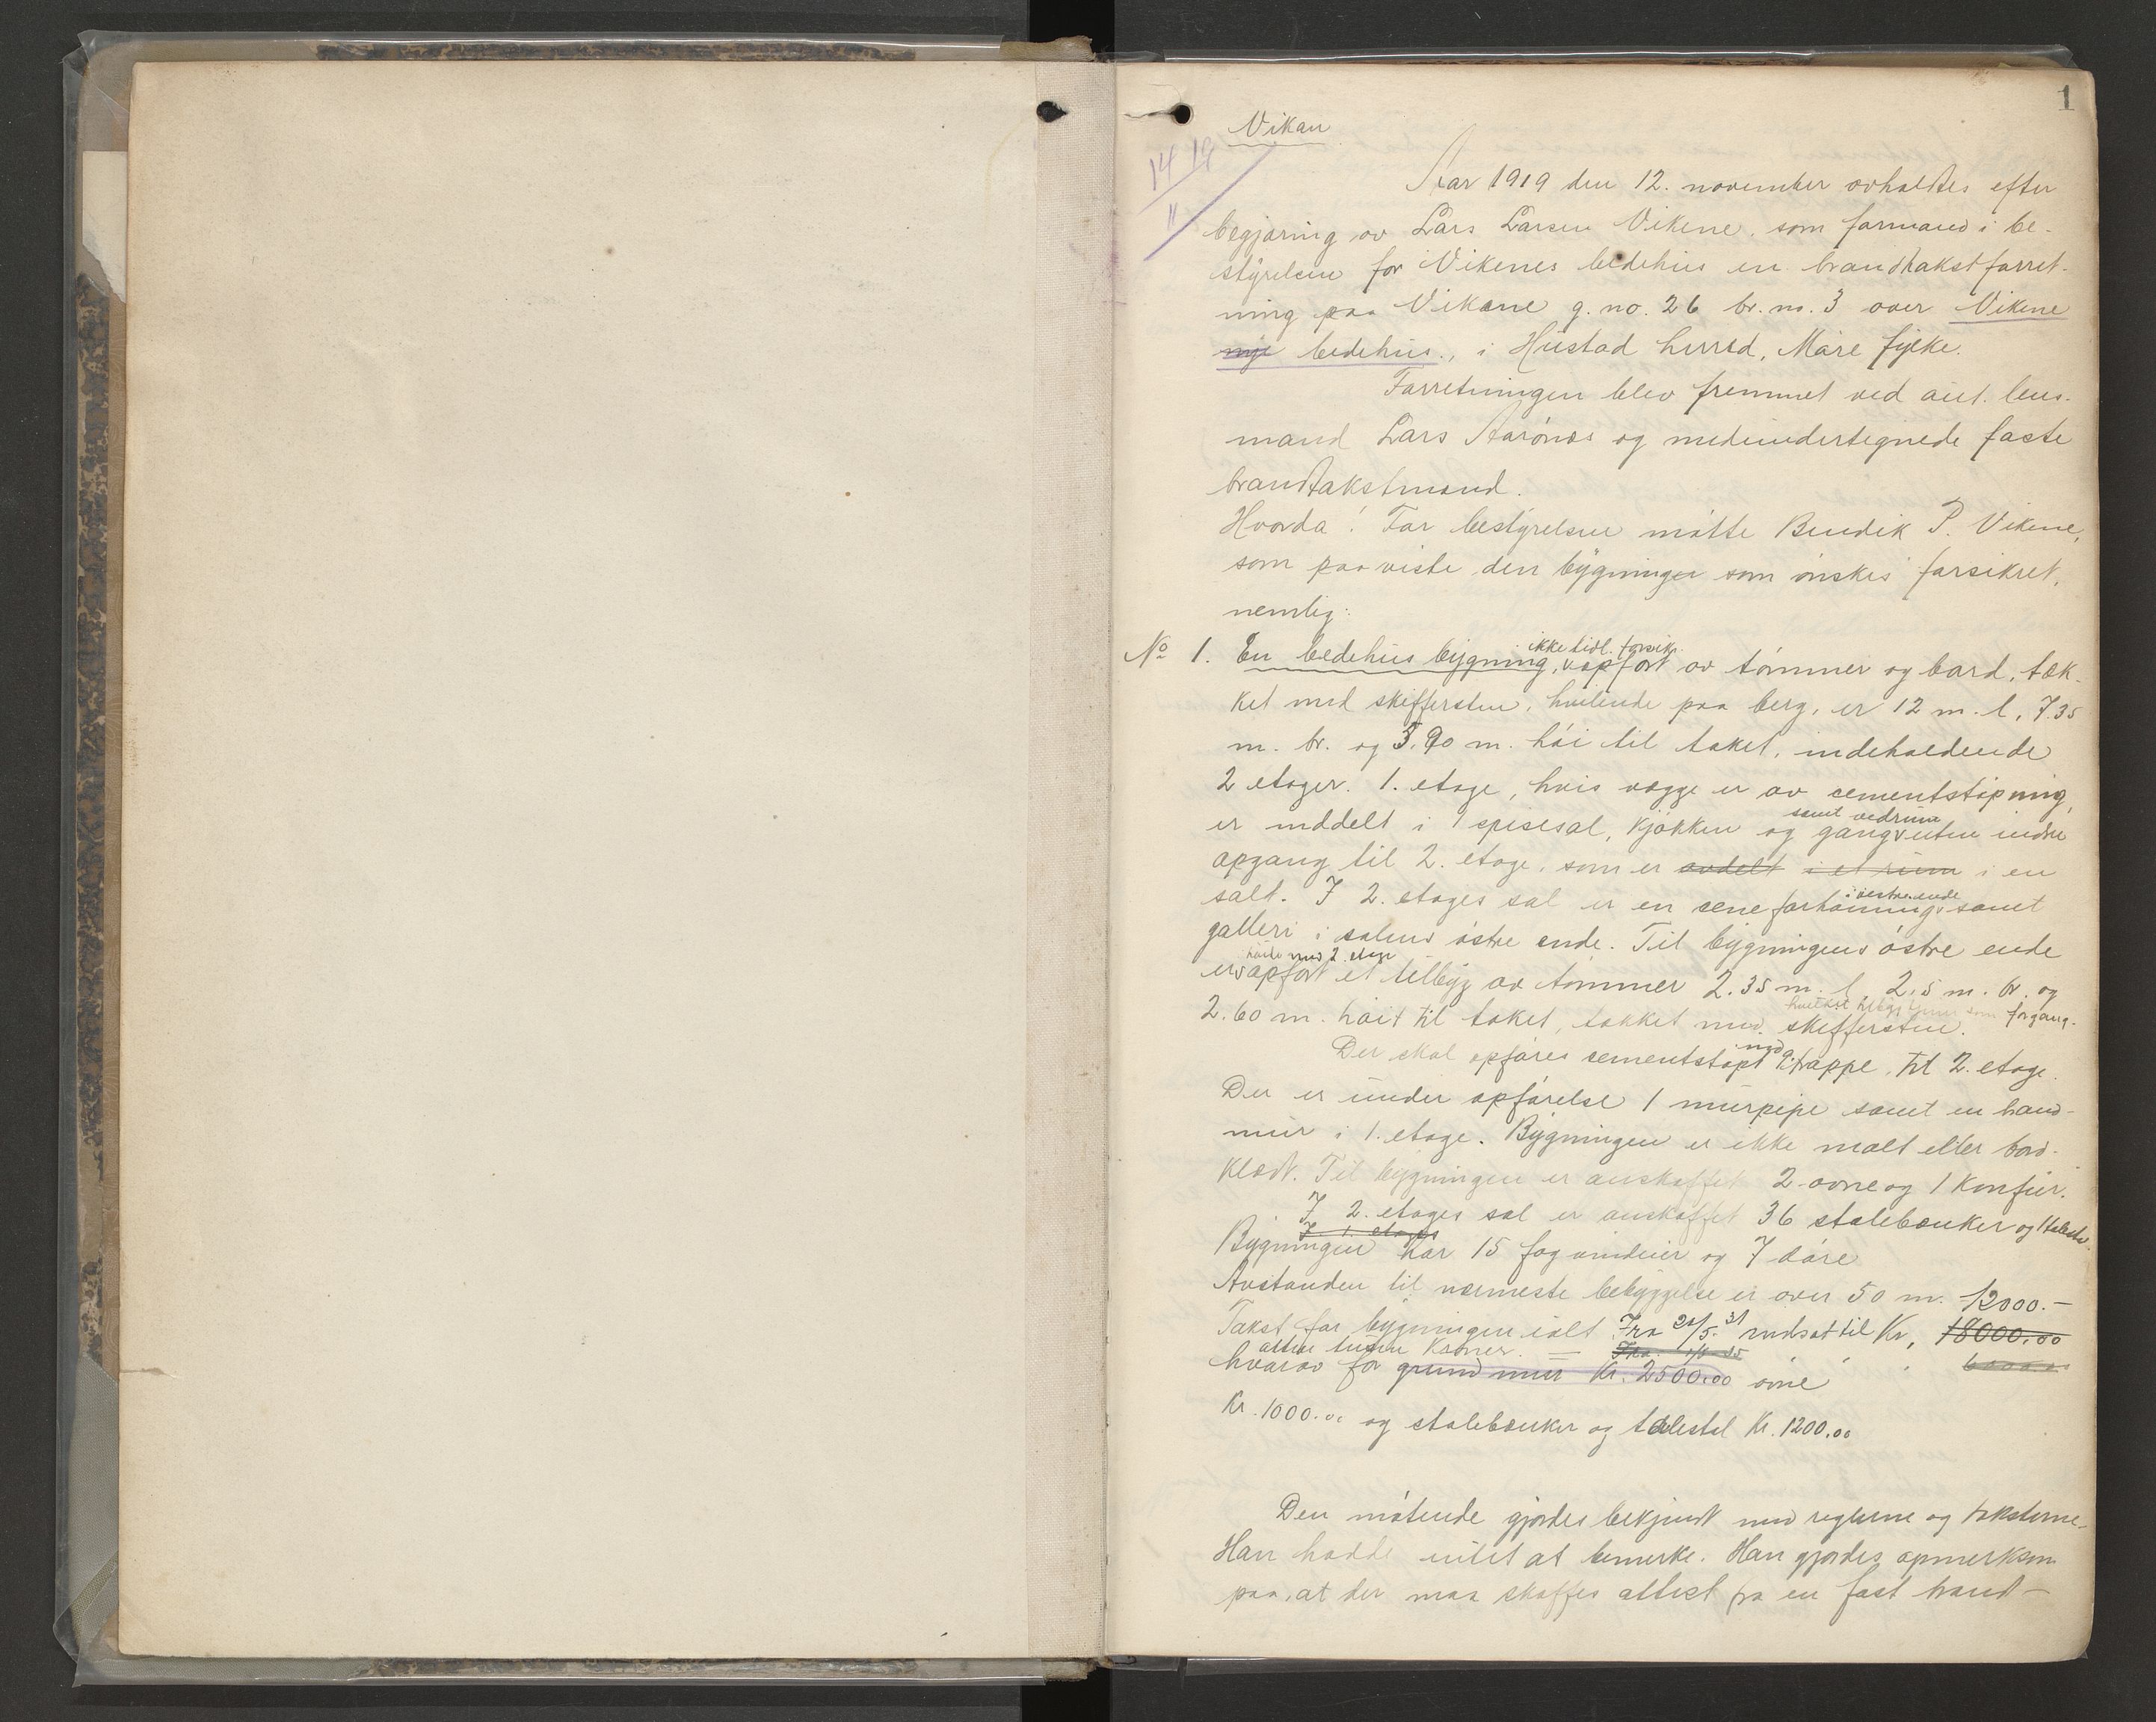 1
Vikan
14/11 19
Aar 1919 den 12. november avholdtes efter
begjæring av Lars Larsen Vikene, som formand i be-
styrelsen for Vikenes bedehus en brandtakstforret-
ning paa Vikane g. no. 26 br. no. 3 over Vikene
nye bedehus., i Hustad herred, Møre fylke.
Forretningen blev fremmet ved aut. lens-
mand Lars Aarønes og medundertegnede faste
brandtakstmænd.
Hvorda! For bestyrelsen møtte Bendik P. Vikene,
som paaviste den bygninger som ønskes forsikret,
nemlig:
ikke tidl. forsik.
No 1. En bedehus bygning, v opført av tømmer og bord, tæk-
ket med skiffersten, hvilende paa berg, er 12 m. l, 7.35
m. br. og 3.90 m. høi til taket, indeholdende
2 etager. 1. etage, hvis vægge er av cementstøpning,
samt vedrum
er inddelt i 1 spisesal, kjøkken og gang v uten indre
opgang til 2. etage, som er avdelt i et rum i en
i vestre ende
salt. I 2. etages sal er en sceneforhøining v samt
galleri i salens østre ende. Til bygningens østre ende
høide med 2. etage
er v opført et tilbyg av tømmer 2.35 m. l. 2.5 m. br. og
forgang.
2.60 m. høit til taket, tækket med skiffersten.
Der skal opføres sementstøpt trappe, til 2. etage.
Der er under opførelse 1 murpipe samt en brand-
mur i 1. etage. Bygningen er ikke malt eller bord-
klædt. Til bygningen er anskaffet 2 ovne og 1 komfur.
I 2. etages sal er anskaffet 36 stolebænker og 1 talest.
I 1. etages
Bygningen har 15 fag vinduer og 7 døre
Avstanden til nærmeste bebyggelse er over 50 m. 12000.-
Takst for bygningen ialt Fra 20/5. 31 nedsat til Kr, 18000.00
atten tusen Kroner. = Fra 1/1 35 6000.00
hvorav for grundmur Kr. 2500.00 ovne
Kr. 1000.00 og stolebænker og talestol Kr. 1200.00
Den møtende gjordes bekjendt med reglerne og taksterne.
Han hadde intet at bemerke. Han gjordes opmerksom
paa, at der maa skaffes attest fra en fast brand-